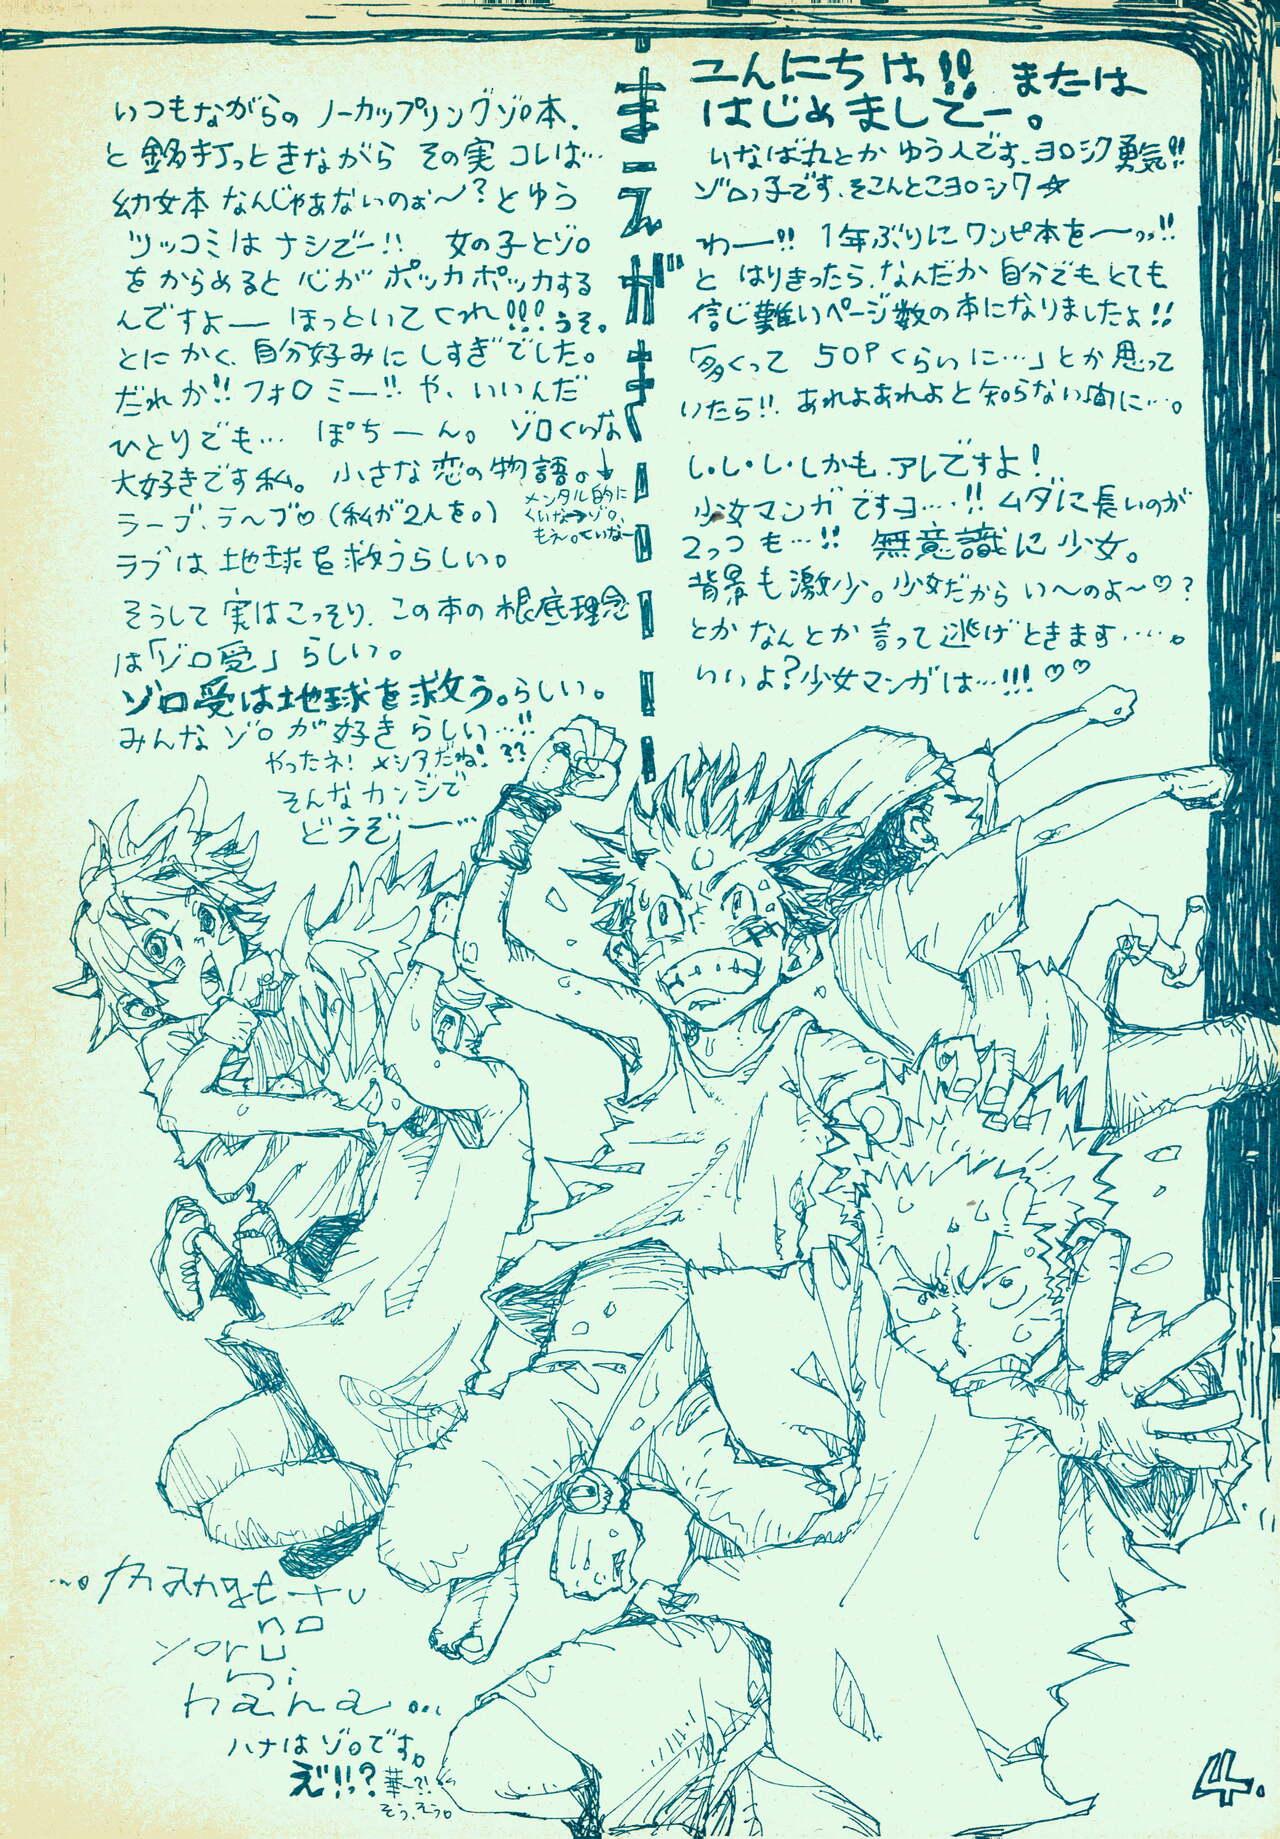 こんにちは!! または
はじめましてー。
いなばれとか ゆう人です、ヨロシク勇気!!
ゾロっ子です、そこんとこヨロシク☆
わー!! 1年ぶりにワンピ本をーっっ!!
と はりきったら、なんだか 自分でも とても
信じ難いページ数の本になりましたよ!!
「多くって 50Pくらいに…」とか思って
いたら!! あれよあれよと知らない間に…。
し・し・し・しかも、アレですよ!
少女マンガですヨ…!! ムダに長いのが
2っつも…!! 無意識に少女。
背景も激少。少女だからい〜のよ〜♡?
とか なんとか 言って 逃げときます……。
いいよ?少女マンガは…!!!♡♡
まーえがき
いつもながらの ノーカップリングゾロ本、
と 銘打っときながら その実 コレは…
幼女本 なんじゃぁないのぉ〜? とゆう
ツッコミは ナシでー!! 女の子とゾロ
をからめると 心が ポッカポッカする
んですよー ほっといてくれ!!! うそ。
とにかく、自分好みに しすぎでした。
だれか!! フォロミー!! や、いいんだ
ひとりでも… ぽちーん。 ゾロくいな
大好きです私。 小さな恋の物語。↓
メンタル的に
くいな→ゾロ。
もえ〜。くいなー
ラーブ、ラ〜ブ♡ (私が2人を。)
ラブは 地球を救うらしい。
そうして 実はこっそり、この本の根底理念
は「ゾロ受」らしい。
ゾロ受は地球を救う。らしい。
みんな ゾロ が好き らしい…!!
やったネ! メシアだね! ??
そんな カンジで
どうぞー…
...mangetu
no
yoru
ni
hana...
ハナは ゾロです。
え!!っ? 華〜?!
そう、えう。
4.